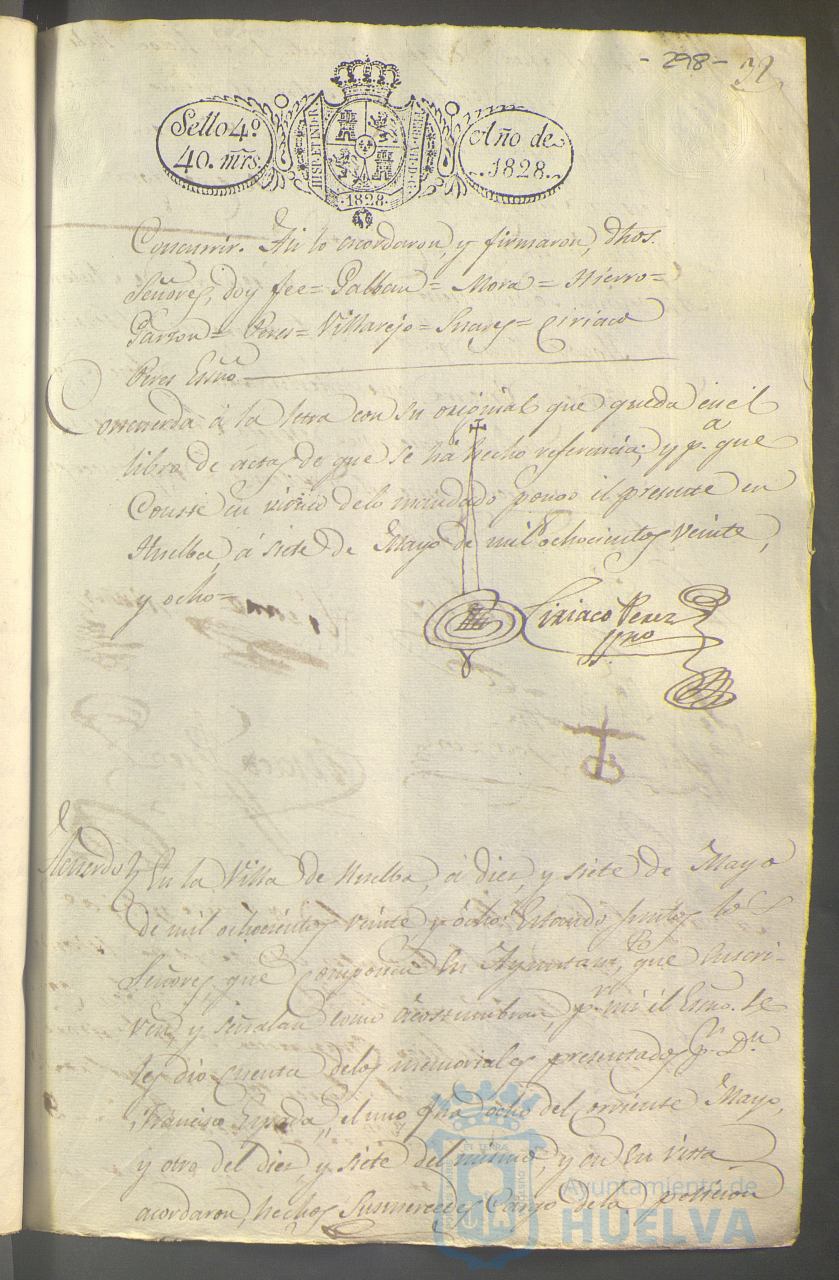 - 298 - 32
Sello 4º
40. mrs.
HISP. ET IND. R
FERD. VII. D. G.
·1828·
Año de
.1828.
Concurrir. Asi lo acordaron, y firmaron, dhos.
Señores, doy fee= Galban= Mora= Hierro=
Garzon= Peres= Villarejo= Suares= Ciriaco
Peres Essno
Concuerda á la letra con su original que queda en el
libro de actas de que se há hecho referencia; y pª. que
Conste en virtud delo mandado pongo el presente en
Huelba, á siete de Mayo de mil ochocientos veinte,
y ocho=
Ciriaco Perez
ssno
Acuerdo En la Villa de Huelba, á diez, y siete de Mayo
de mil ochocientos veinte y ocho: Estando juntos los
Señores, que componen su Ayuntamto, que suscri-
ven, y señalan como acostumbran, pr. mi el Essno. se
les dio cuenta delos memoriales presentados pr. Dn
Francisco el uno fha ocho del corriente Mayo,
y otro del diez, y siete del mismo, y en su vista
acordaron, hechos Susmercedes cargo dela
Ayuntamiento de
HUELVA